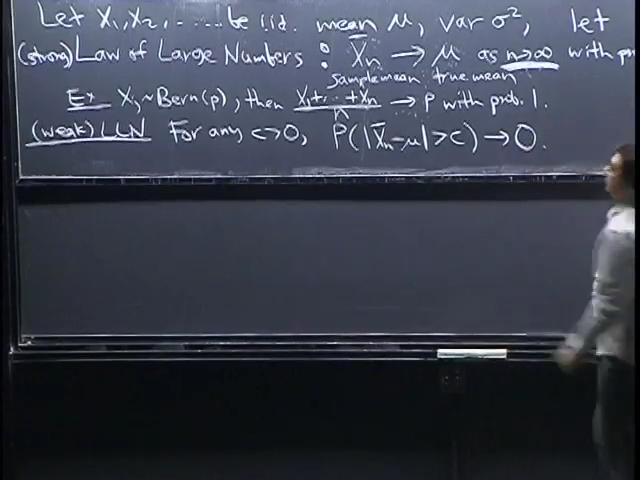 Let X₁, X₂, ..... be i.i.d. mean μ, var σ², let
(strong) Law of Large Numbers : X̄ₙ → μ as n→∞ with pr
sample mean true mean
Ex Xⱼ~Bern(p), then X₁+...+Xₙ/n → p with prob. 1.
(weak) LLN For any c>0, P(|X̄ₙ-μ|>c) → 0.